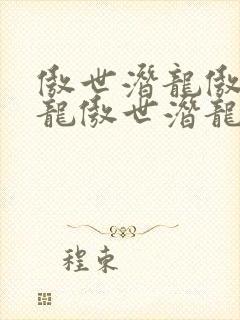 傲世潛龍傲
龍傲世潛龍
程東